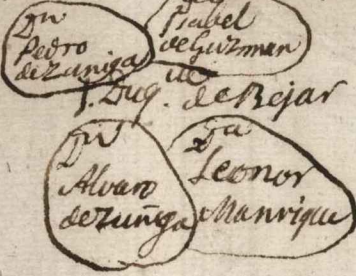 Dn
Pedro
de Zuniga
Ysabel
de Guzman
1. Duq.ue de Bejar
Dn
Alvaro
de Zuñiga
Da
Leonor
Manrique